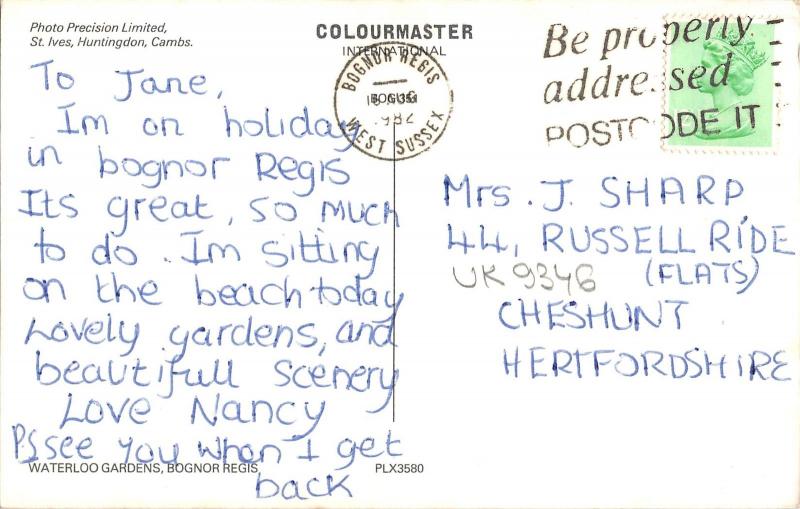 Photo Precision Limited,
St. Ives, Huntingdon, Cambs.
COLOURMASTER
INTERNATIONAL
BOGNOR REGIS
1982
WEST SUSSEX
Be properly
addressed
POSTCODE IT
To Jane,
Im on holiday
in bognor Regis
Its great, so much
to do. Im sitting
on the beach today
Lovely gardens, and
beautifull scenery
Love Nancy
PS see you when I get
back
Mrs. J. SHARP
44, RUSSELL RIDE
(FLATS)
UK 9346
CHESHUNT
HERTFORDSHIRE
WATERLOO GARDENS, BOGNOR REGIS
PLX3580